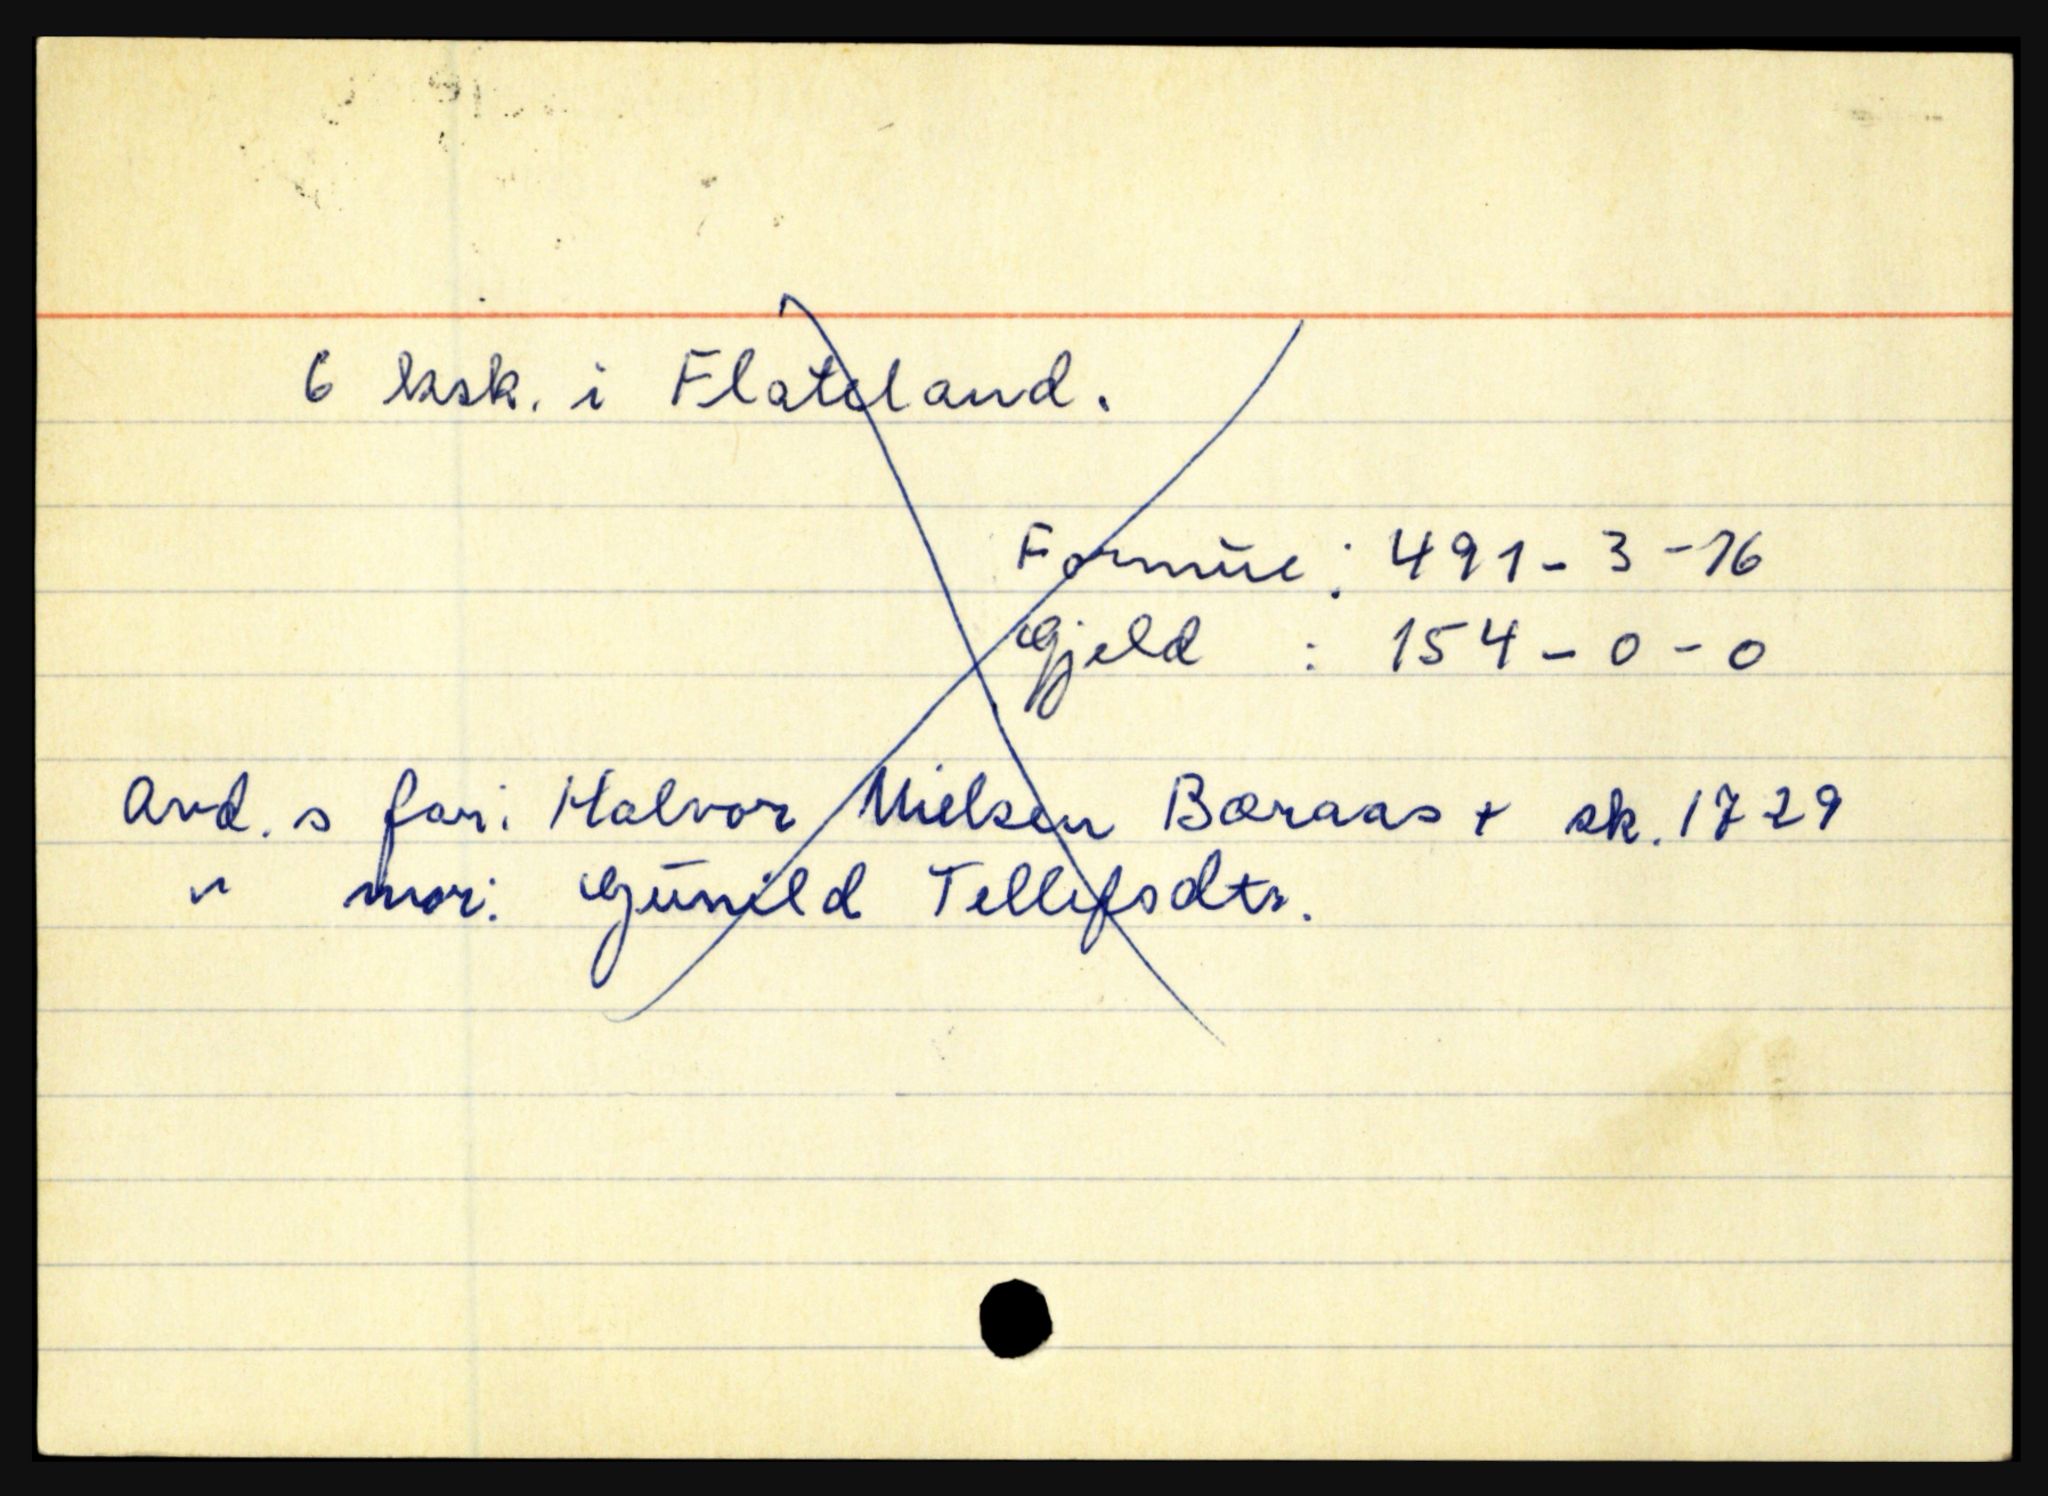 6 ksk. i Flateland.
Formue: 491-3-16
Gjeld : 154-0-0
Avd. s far: Halvor Nielsen Børaas + sk. 1729
" mor: Gunild Tellefsdtr.